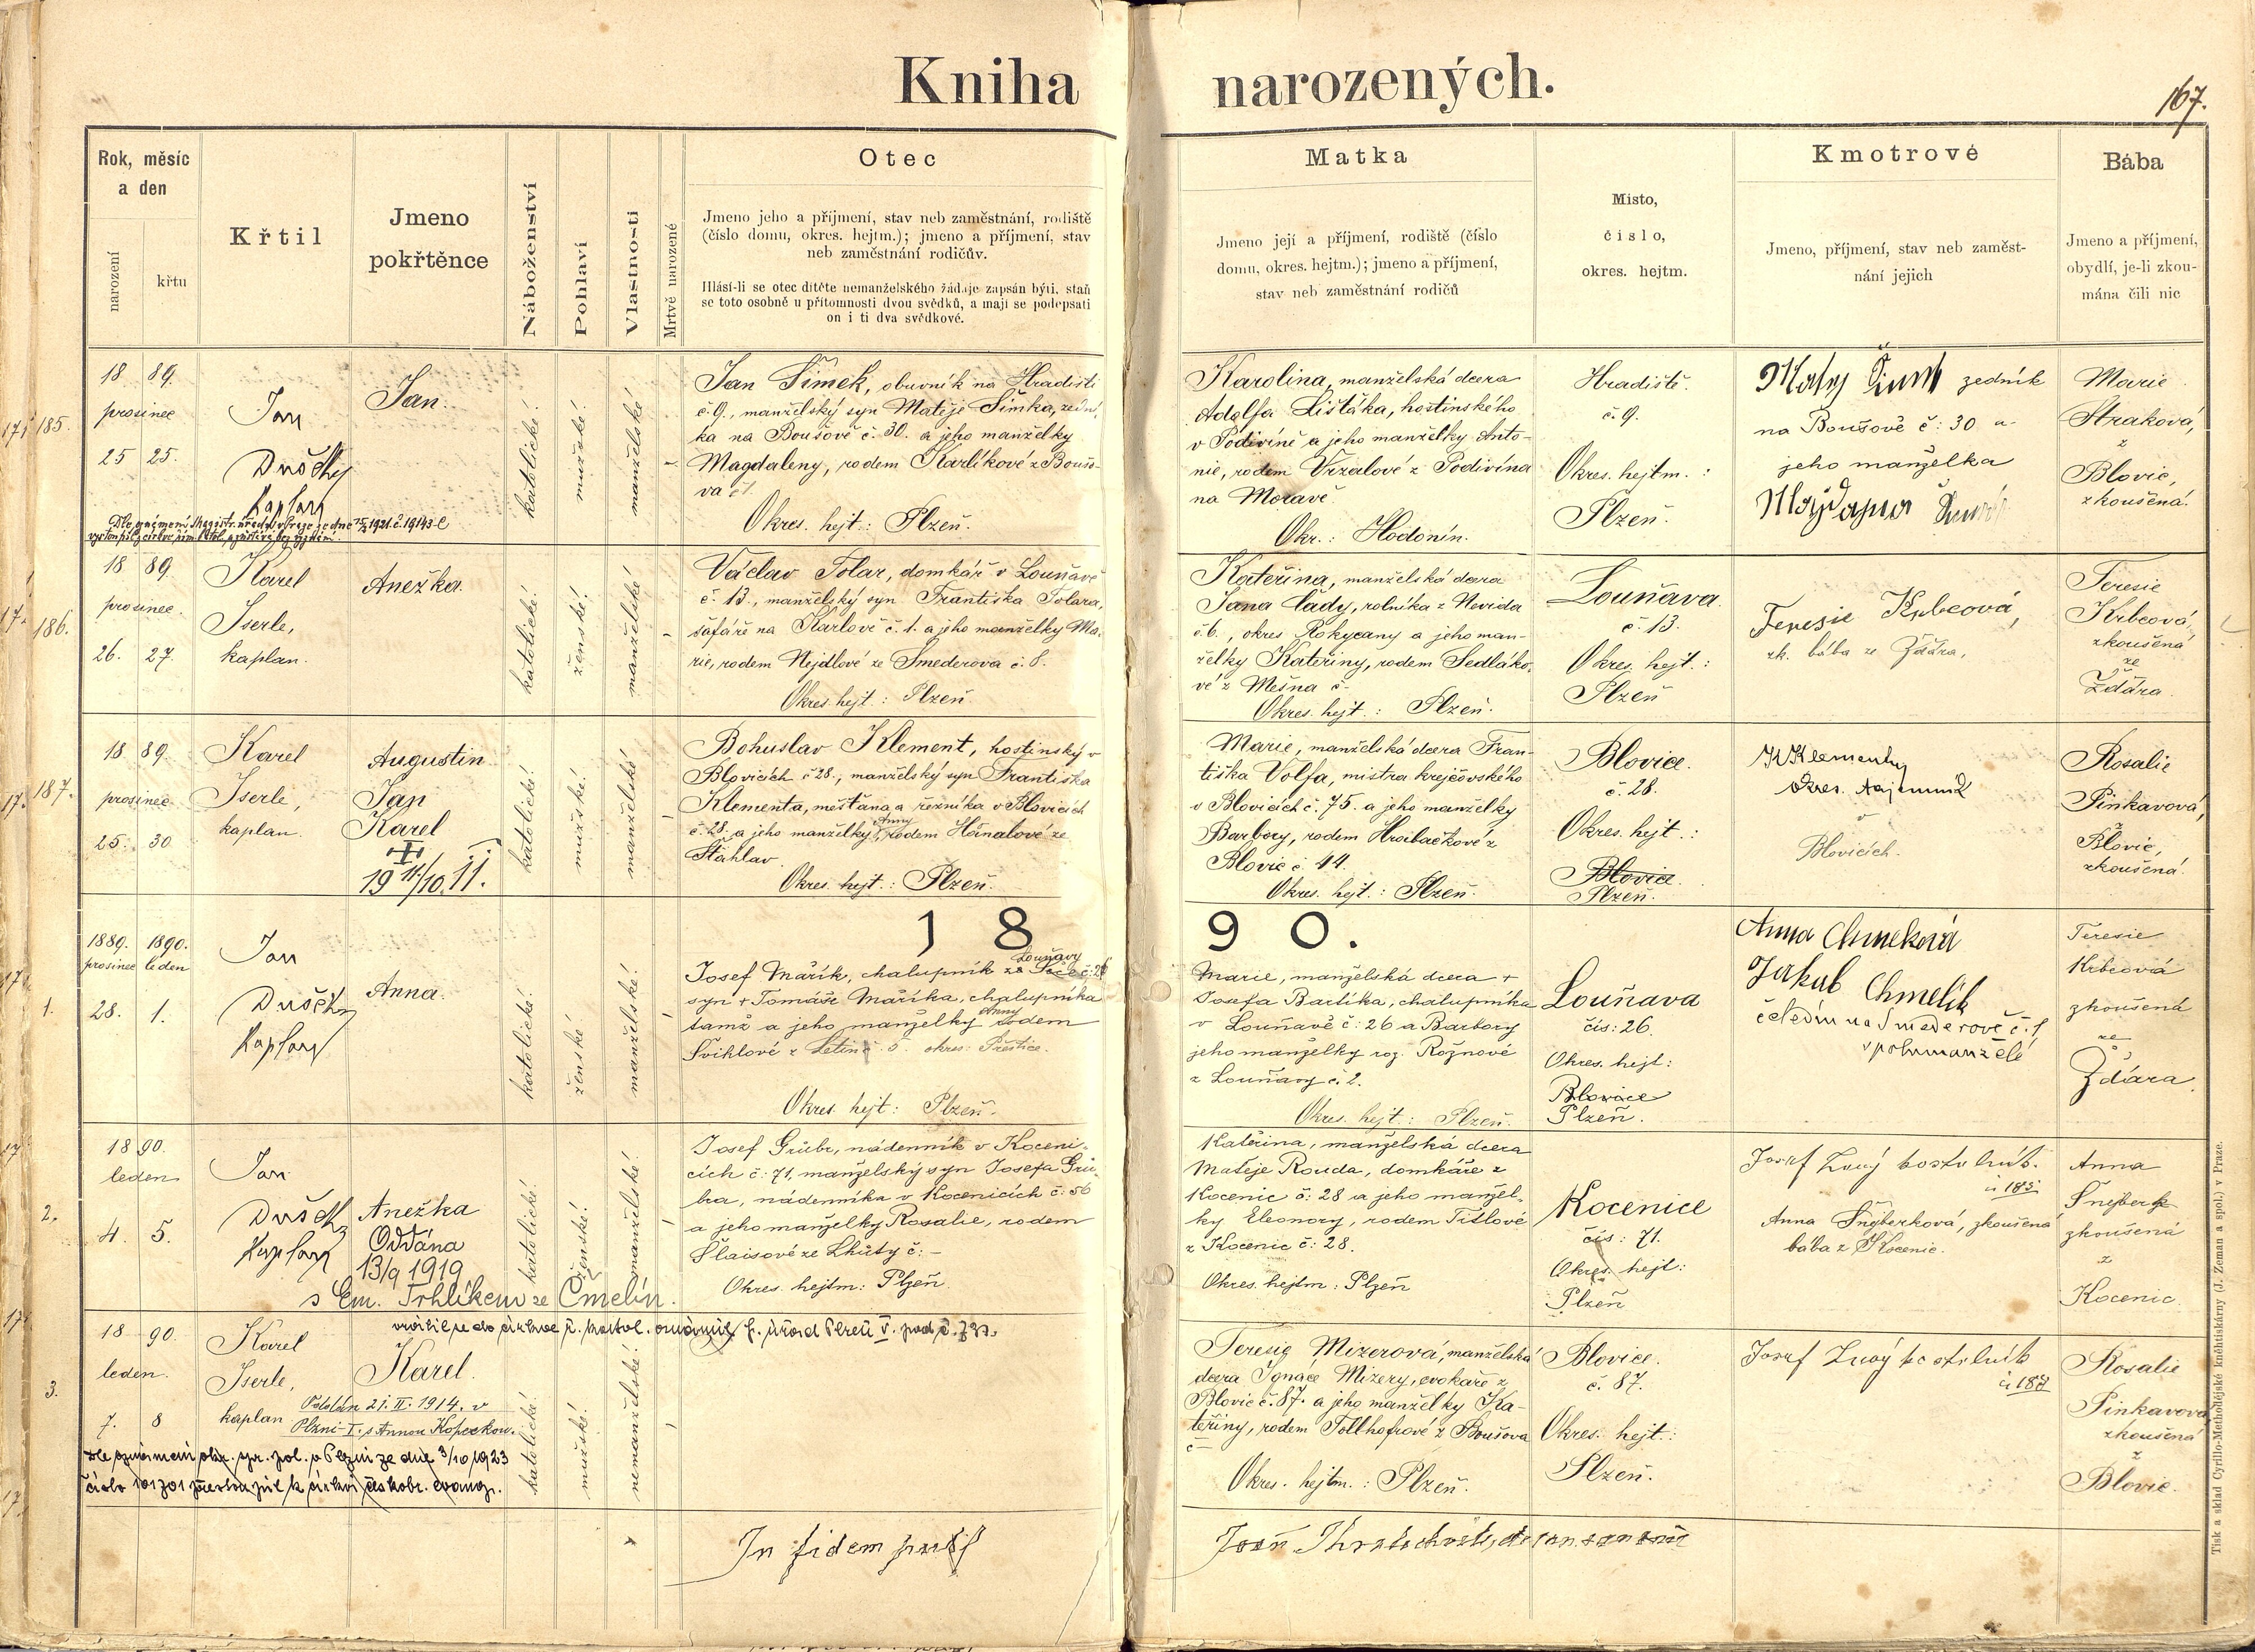 Kniha narozených.
167.
Rok, měsíc
a den
narození
křtu
Křtil
Jmeno
pokřtěnce
Náboženství
Pohlaví
Vlastnosti
Mrtvě narozené
Otec
Jmeno jeho a příjmení, stav neb zaměstnání, rodiště
(číslo domu, okres. hejtm.); jmeno a příjmení, stav
neb zaměstnání rodičův.
Hlásí-li se otec dítěte nemanželského žádaje zapsán býti, staň
se toto osobně u přítomnosti dvou svědků, a mají se podepsati
on i ti dva svědkové.
Matka
Jmeno její a příjmení, rodiště (číslo
domu, okres. hejtm.); jmeno a příjmení,
stav neb zaměstnání rodičů
Místo,
číslo,
okres. hejtm.
Kmotrové
Jmeno, příjmení, stav neb zaměst-
nání jejich
Bába
Jmeno a příjmení,
obydlí, je-li zkou-
mána čili nic
185.
18 89.
prosinec
25 25.
Jan
Dušek
Kaplan
Jan.
katolické!
mužské!
manželské!
Jan Šimek, obuvník na Hradišti
č. 9., manželský syn Matěje Šimka, zední-
ka na Boušově č. 30. a jeho manželky
Magdaleny, rodem Karlíkové z Boušo-
va č.
Okres. hejt.: Plzeň.
Karolina, manželská dcera
Adolfa Lišťáka, hostinského
v Podivíně a jeho manželky Anto-
nie, rodem Vrzalové z Podivína
na Moravě.
Okr.: Hodonín.
Hradiště.
č. 9.
Okres. hejtm.:
Plzeň.
zedník
na Boušově č: 30 a
jeho manželka
Marie
Straková,
z
Blovic,
zkoušená.
186.
18 89.
prosinec.
26. 27.
Karel
Iserle,
kaplan.
Anežka.
katolické!
ženské!
manželské!
Václav Tolar, domkář v Louňavě
č. 13., manželský syn Františka Tolara,
šafáře na Karlově č. 1. a jeho manželky Ma-
rie, rodem Nejdlové ze Smederova č. 8.
Okres. hejt.: Plzeň.
Kateřina, manželská dcera
Jana Lády, rolníka z Nevida
č. 6., okres Rokycany a jeho man-
želky Kateřiny, rodem Sedláko-
vé z Mešna č-
Okres. hejt.: Plzeň.
Louňava.
č. 13.
Okres. hejt.:
Plzeň
Teresie Krbcová,
zk. bába ze Ždára,
Teresie
Krbcová,
zkoušená
ze
Ždára.
187.
18 89.
prosinec
25. 30
Karel
Iserle,
kaplan.
Augustin
Jan
Karel
19 11/10. 11.
katolické!
mužské!
manželské!
Bohuslav Klement, hostinský v
Blovicích č 28., manželský syn Františka
Klementa, měšťana a řezníka v Blovicích
č. 28. a jeho manželky Anny, rodem Hőnalové ze
Šťahlav.
Okres. hejt.: Plzeň.
Marie, manželská dcera Fran-
tiška Volfa, mistra krejčovského
v Blovicích č. 75. a jeho manželky
Barbory, rodem Hrubačkové z
Blovic č. 44.
Okres. hejt.: Plzeň.
Blovice.
č. 28.
Okres. hejt.:
Blovice.
Plzeň.
K Klement
okres. tajemník
v
Blovicích.
Rosalie
Pinkavová,
z
Blovic,
zkoušená.
1890.
1.
1889. 1890.
prosinec leden
28. 1.
Jan
Dušek
Kaplan
Anna.
katolické!
ženské!
manželské!
Josef Mařík, chalupník z Louňavy č: 26
syn + Tomáše Maříka, chalupníka
tamž a jeho manželky Anny rodem
Švihlové z Letin č. 5. okres: Přeštice.
Okres. hejt: Plzeň.
Marie, manželská dcera +
Josefa Bartíka, chalupníka
v Louňavě č: 26 a Barbory
jeho manželky roz. Rožnové
z Louňavy č. 2.
Okres. hejt.: Plzeň.
Louňava
čís: 26.
Okres. hejt:
Blovice
Plzeň.
Anna Chmelková
Jakub Chmelík
čeledín na Smederově č. 1
Teresie
Krbcová
zkoušená
ze
Ždára
2.
18 90.
leden
4. 5.
Jan
Dušek
Kaplan
Anežka
Oddána
13/9 1919
s Em. Trhlíkem ze Čmelín.
katolické!
ženské!
manželské!
Josef Grűbr, nádenník v Koceni-
cích č: 71, manželský syn Josefa Grű-
bra, nádenníka v Kocenicích č: 56
a jeho manželky Rosalie, rodem
Šlaisové ze Lhůty č: -
Okres. hejtm: Plzeň
Kateřina, manželská dcera
Matěje Rouda, domkáře z
Kocenic č: 28 a jeho manžel-
ky Eleonory, rodem Títlové
z Kocenic č: 28.
Okres. hejtm: Plzeň
Kocenice
čís: 71.
Okres. hejt:
Plzeň
Josef Živý kostelník.
č 185
Anna Šnejberková, zkoušená
bába z Kocenic.
Anna
Šnejberk
zkoušená
z
Kocenic
3.
18 90.
leden.
7. 8
Karel
Iserle,
kaplan
Karel.
Oddán 21. II. 1914. v
Plzni-I. s Annou Kopeckou.
katolické!
mužské!
nemanželské!
Teresie Mizerová, manželská
dcera Ignáce Mizery, cvokaře z
Blovic č. 87. a jeho manželky Ka-
teřiny, rodem Tollhofrové z Boušova
č -
Okres. hejtm.: Plzeň.
Blovice.
č. 87.
Okres. hejt.:
Plzeň.
Josef Živý kostelník
č 187
Rosalie
Pinkavová
zkoušená
z
Blovic.
In fidem
Tisk a sklad Cyrillo-Methodějské kněhtiskárny (J. Zeman a spol.) v Praze.